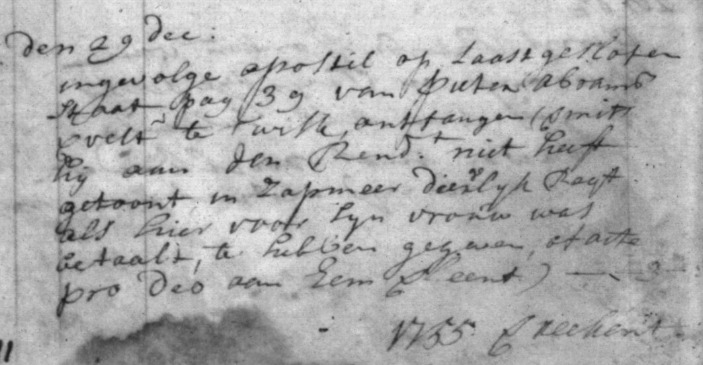 den 29 dec:
ingevolge apostil op Laast gesloten
staat pag 39 van pieter Abrams
te ontfangen (mits
hij aan den Rend.t niet heeft
getoont in Zapmeer dierlyk
als hier voor syn vrouw was
betaalt, te hebben gegeven, of acte
pro Deo aan Een Cleent) —
1755